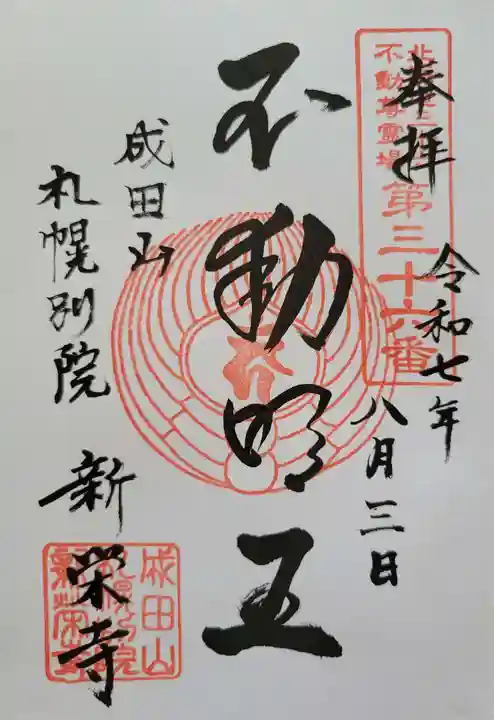 奉拝
令和七年
八月三日
不動明王
成田山
札幌別院
新栄寺
不動尊霊場
第三十六番
成田山
札幌別院
新栄寺